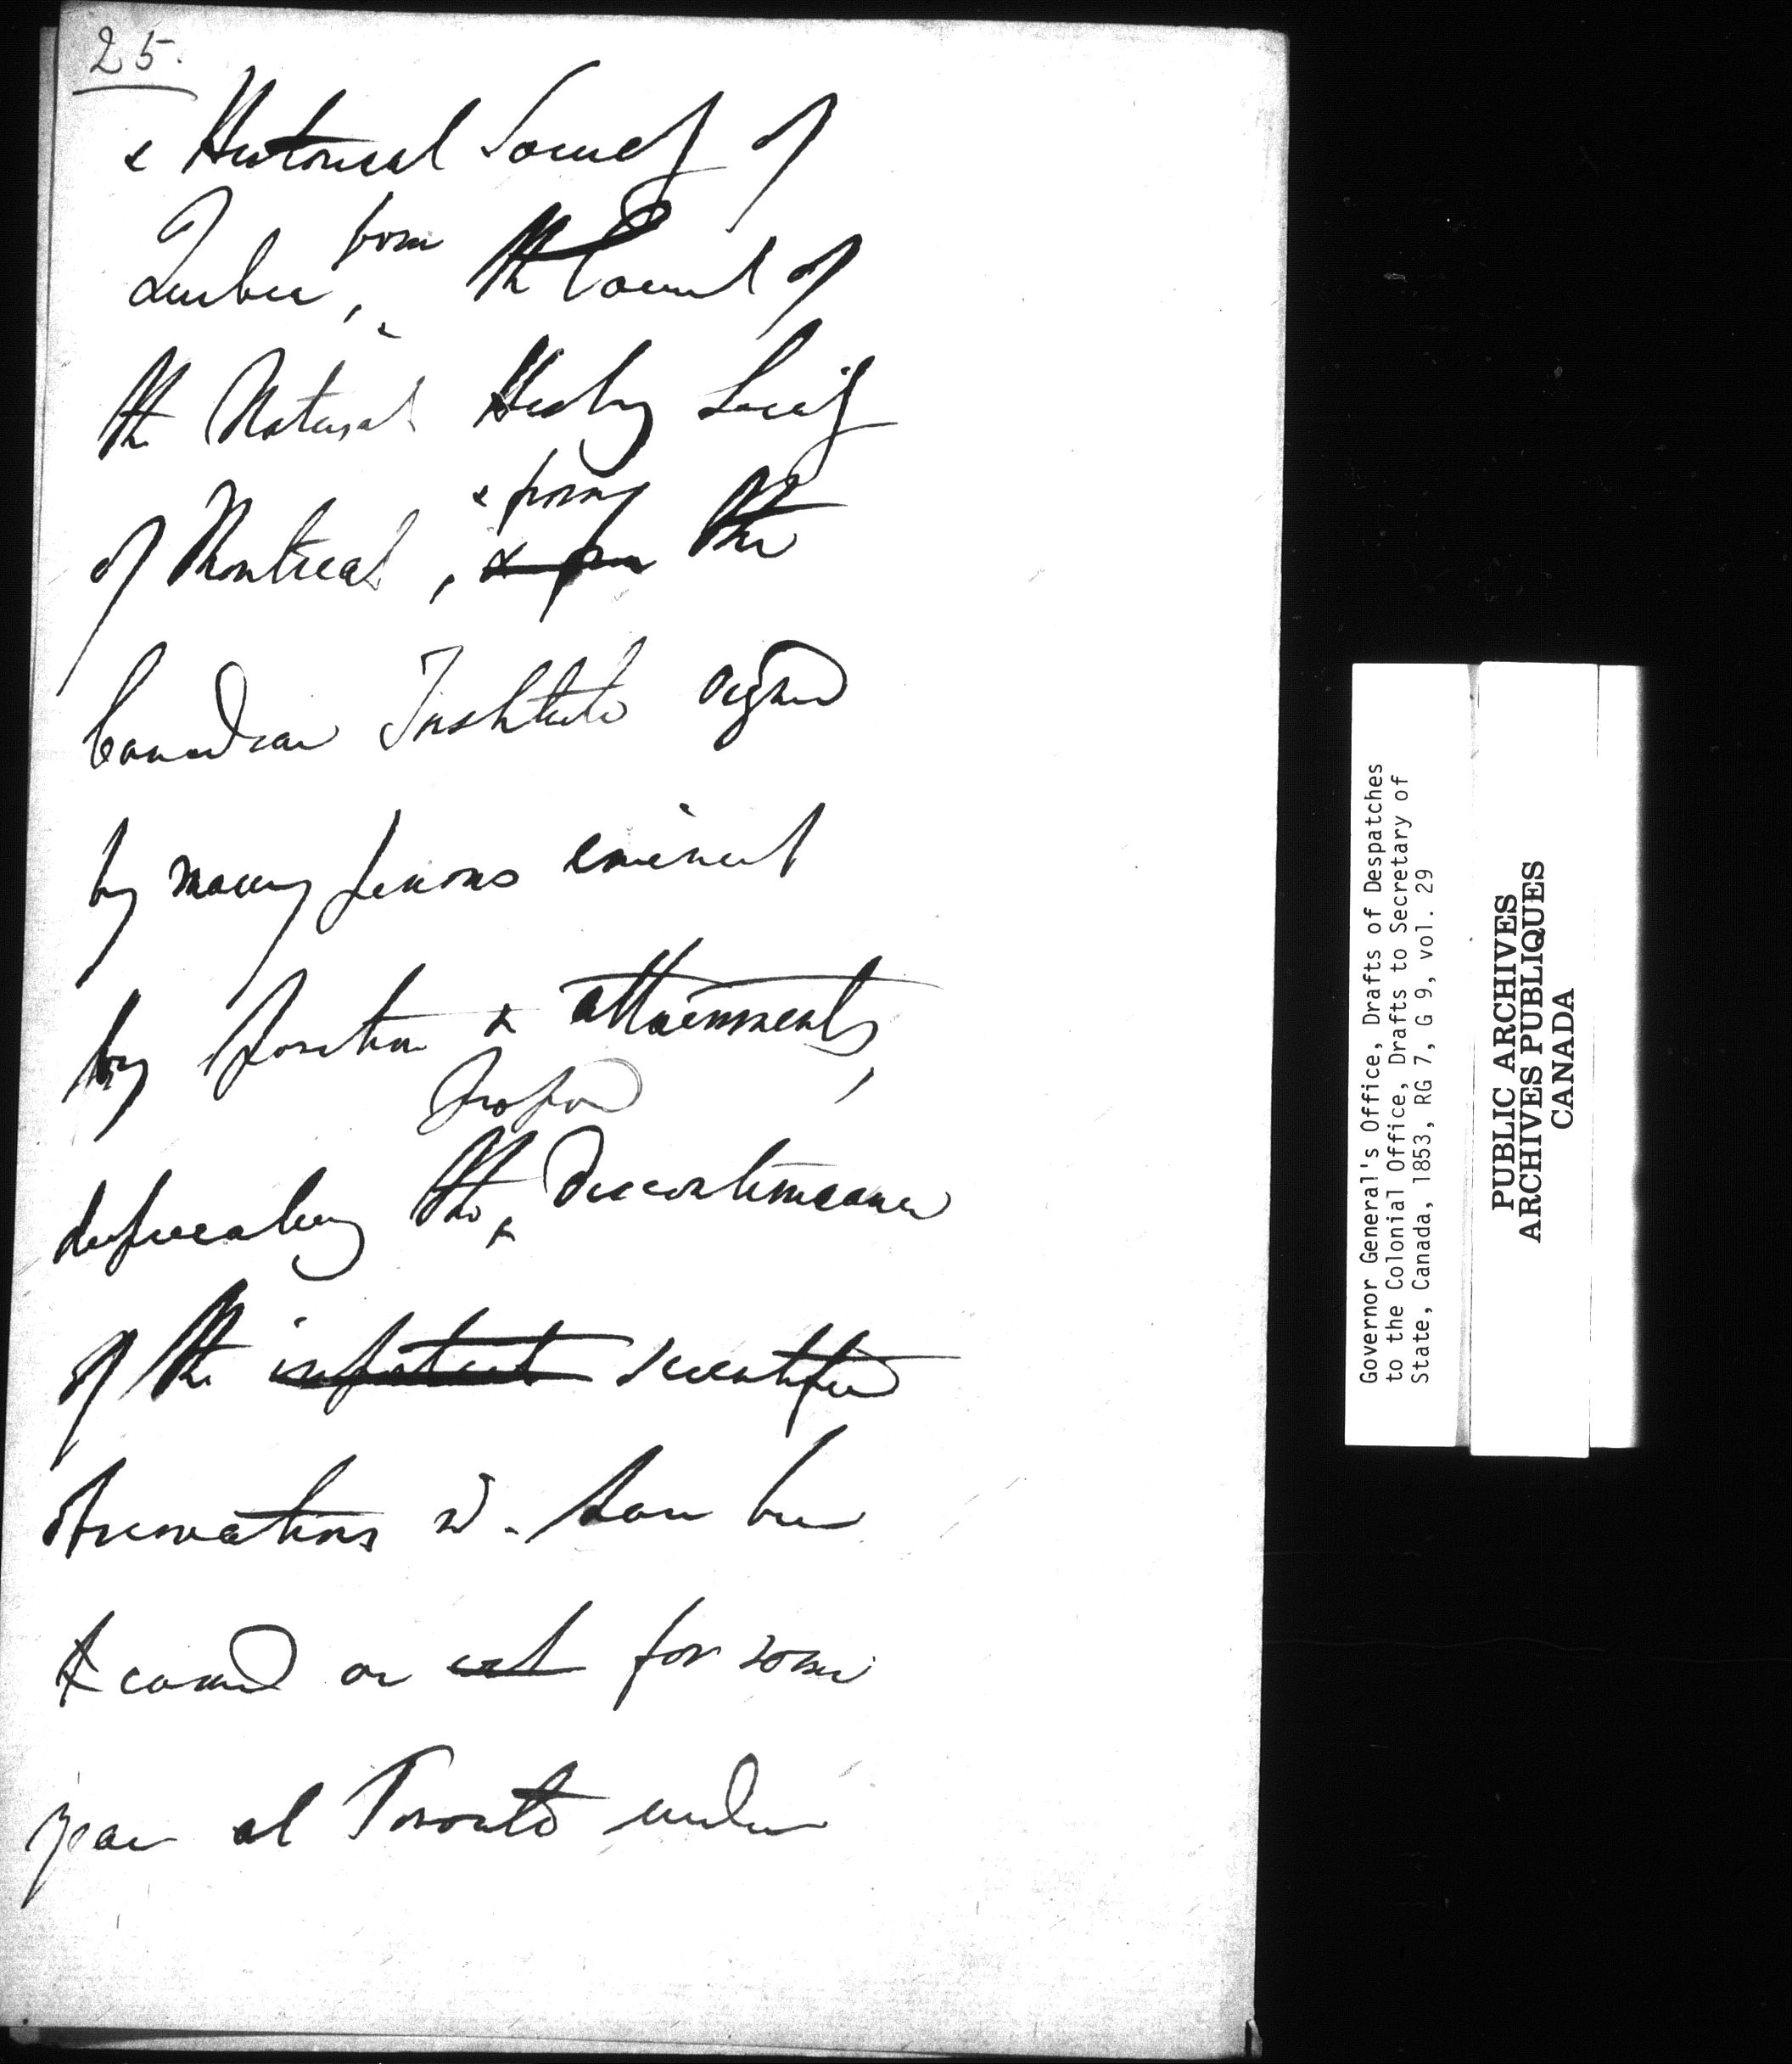 25.
& Historical Society of
from
Quebec, the Council of
the Natural History Society
& from
of Montreal, & from the
Canadian Institute signed
by many persons eminent
by position & attainments,
proposed
deprecating the discontinuance
of the important scientific
observations wh. have been
carried on for some
years at Toronto under
Governor General's Office, Drafts of Despatches
to the Colonial Office, Drafts to Secretary of
State, Canada, 1853, RG 7, G 9, vol. 29
PUBLIC ARCHIVES
ARCHIVES PUBLIQUES
CANADA